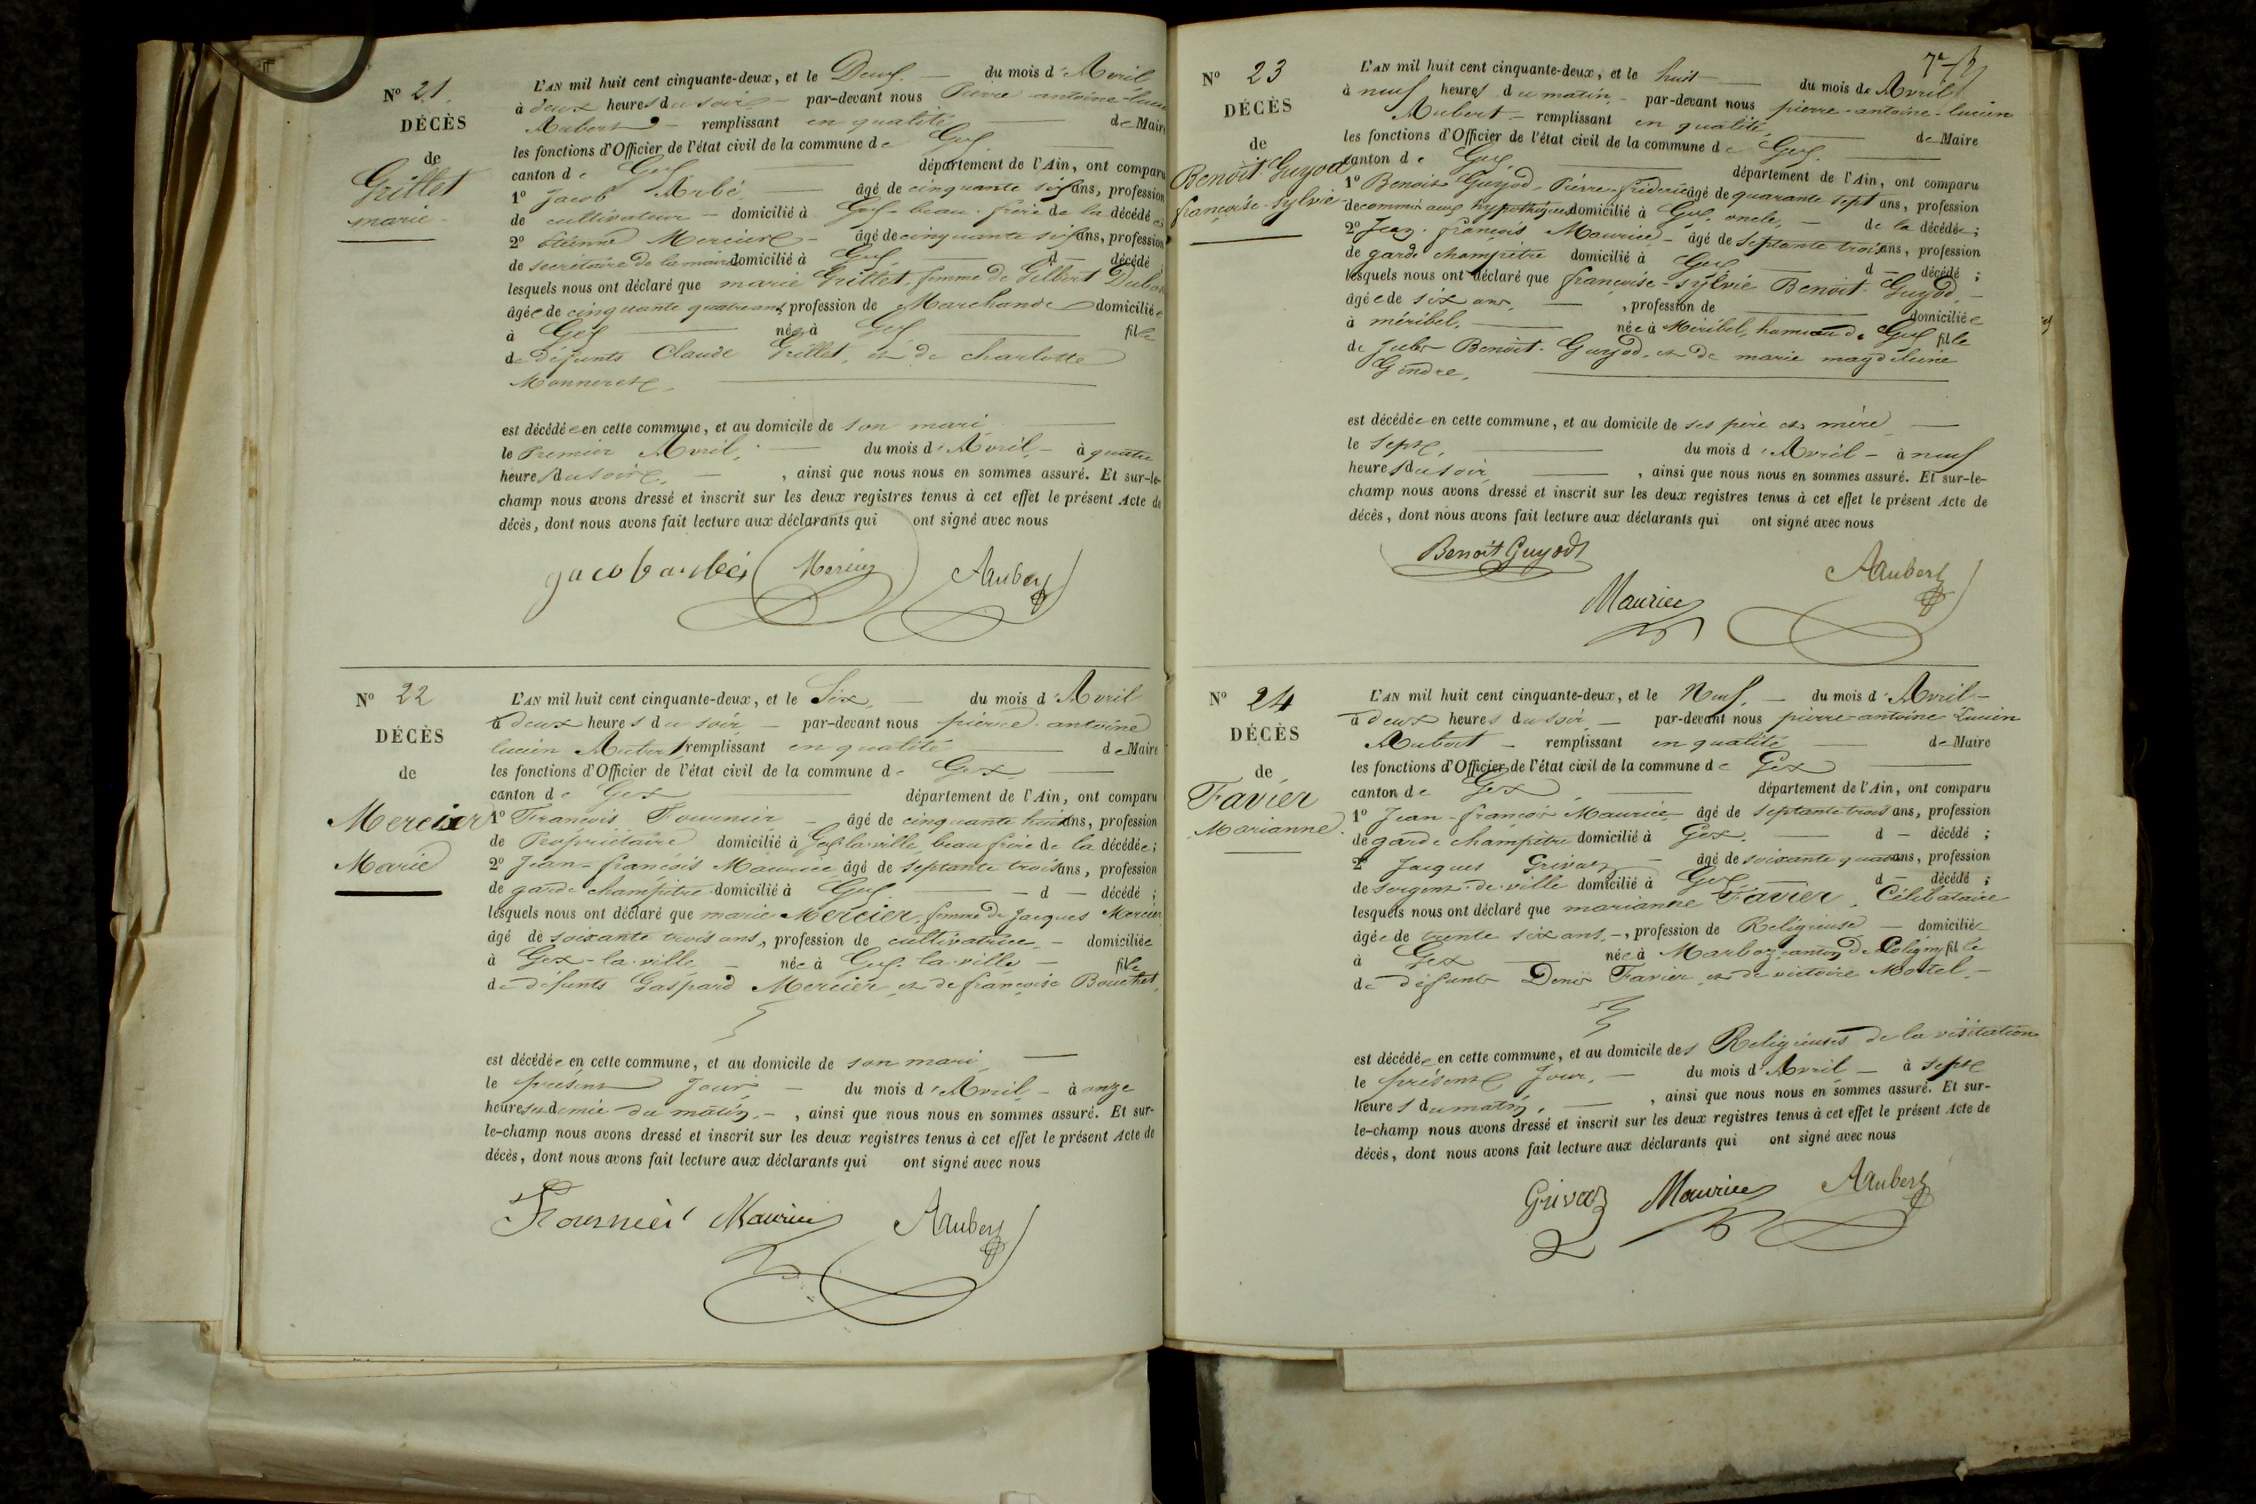 N° 21.
DÉCÈS
de
Grillet
marie
L'AN mil huit cent cinquante-deux, et le Deux. du mois d'Avril
à deux heures du soir par-devant nous Pierre antoine
Aubert remplissant en qualité de Maire
les fonctions d'Officier de l'état civil de la commune de Gex
canton de Gex département de l'Ain, ont comparu
1° Jacob Arbé âgé de cinquante six ans, profession
de cultivateur domicilié à Gex beau-frère de la décédée
2° Etienne Mercier âgé de cinquante six ans, profession
de secrétaire de la mairie domicilié à Gex d décédé ;
lesquels nous ont déclaré que marie Grillet, femme de Gelbert
âgée de cinquante quatre ans, profession de Marchande domiciliée
à Gex née à Gex fille
de défunts Claude Grillet, et de charlotte
Monneret,
est décédée en cette commune, et au domicile de son mari
le Premier Avril, du mois d'Avril à quatre
heures du soir, , ainsi que nous nous en sommes assuré. Et sur-le-
champ nous avons dressé et inscrit sur les deux registres tenus à cet effet le présent Acte de
décès, dont nous avons fait lecture aux déclarants qui ont signé avec nous
jacob arbés Mercier Aubert
N° 22
DÉCÈS
de
Mercier
Marie
L'AN mil huit cent cinquante-deux, et le Six, du mois d'Avril
à deux heures du soir par-devant nous pierre antoine
lucien Aubert, remplissant en qualité de Maire
les fonctions d'Officier de l'état civil de la commune de Gex
canton de Gex département de l'Ain, ont comparu
1° François Fournier âgé de cinquante huit ans, profession
de Propriétaire domicilié à Gex la ville, beau frère de la décédée ;
2° Jean-françois Maurice âgé de septante trois ans, profession
de garde champêtre domicilié à Gex d décédé ;
lesquels nous ont déclaré que marie Mercier, femme de Jacques Mercier
âgé de soixante trois ans, profession de cultivatrice domiciliée
à Gex-la-ville née à Gex-la-ville fille
de défunts Gaspard Mercier et de françoise Bouchet,
est décédée en cette commune, et au domicile de son mari
le présent Jour du mois d'Avril à onze
heures et demie du matin, , ainsi que nous nous en sommes assuré. Et sur-
le-champ nous avons dressé et inscrit sur les deux registres tenus à cet effet le présent Acte de
décès, dont nous avons fait lecture aux déclarants qui ont signé avec nous
Fournier Maurice Aubert
N° 23
DÉCÈS
de
Benoit Guyod
françoise-Sylvie
L'AN mil huit cent cinquante-deux, et le huit du mois de Avril
à neuf heures du matin par-devant nous pierre-antoine-lucien
Aubert remplissant en qualité de Maire
les fonctions d'Officier de l'état civil de la commune de Gex
canton de Gex département de l'Ain, ont comparu
1° Benoit Guyod, Pierre-fréderic âgé de quarante sept ans, profession
de commis aux hypothèques domicilié à Gex, oncle, de la décédée ;
2° Jean-françois Maurice âgé de septante trois ans, profession
de garde champêtre domicilié à Gex d décédé ;
lesquels nous ont déclaré que françoise-sylvie Benoit-Guyod,
âgée de six ans, , profession de domiciliée
à méribel, née à Méribel, hameau de Gex fille
de Jules Benoit-Guyod, et de marie magdeleine
Gendre,
est décédée en cette commune, et au domicile de ses père et mère
le sept, du mois d'Avril à neuf
heures du soir , ainsi que nous nous en sommes assuré. Et sur-le-
champ nous avons dressé et inscrit sur les deux registres tenus à cet effet le présent Acte de
décès, dont nous avons fait lecture aux déclarants qui ont signé avec nous
Benoit Guyod
Maurice Aubert
N° 24
DÉCÈS
de
Favier
Marianne
L'AN mil huit cent cinquante-deux, et le Neuf, du mois d'Avril
à deux heures du soir par-devant nous pierre-antoine Lucien
Aubert remplissant en qualité de Maire
les fonctions d'Officier de l'état civil de la commune de Gex
canton de Gex département de l'Ain, ont comparu
1° Jean-françois Maurice âgé de septante trois ans, profession
de garde champêtre domicilié à Gex. d décédé ;
2° Jacques Grivaz âgé de soixante quatre ans, profession
de sergent-de-ville domicilié à Gex d décédé ;
lesquels nous ont déclaré que marianne Favier, Célibataire
âgée de trente six ans, profession de Religieuse domiciliée
à Gex née à Marboz, canton de Coligny fille
de défunts Denis Favier, et de victoire Mortel
est décédée en cette commune, et au domicile des Religieuses de la visitation
le présent Jour, du mois d'Avril à sept
heures du matin, , ainsi que nous nous en sommes assuré. Et sur-
le-champ nous avons dressé et inscrit sur les deux registres tenus à cet effet le présent Acte de
décès, dont nous avons fait lecture aux déclarants qui ont signé avec nous
Grivaz Maurice Aubert